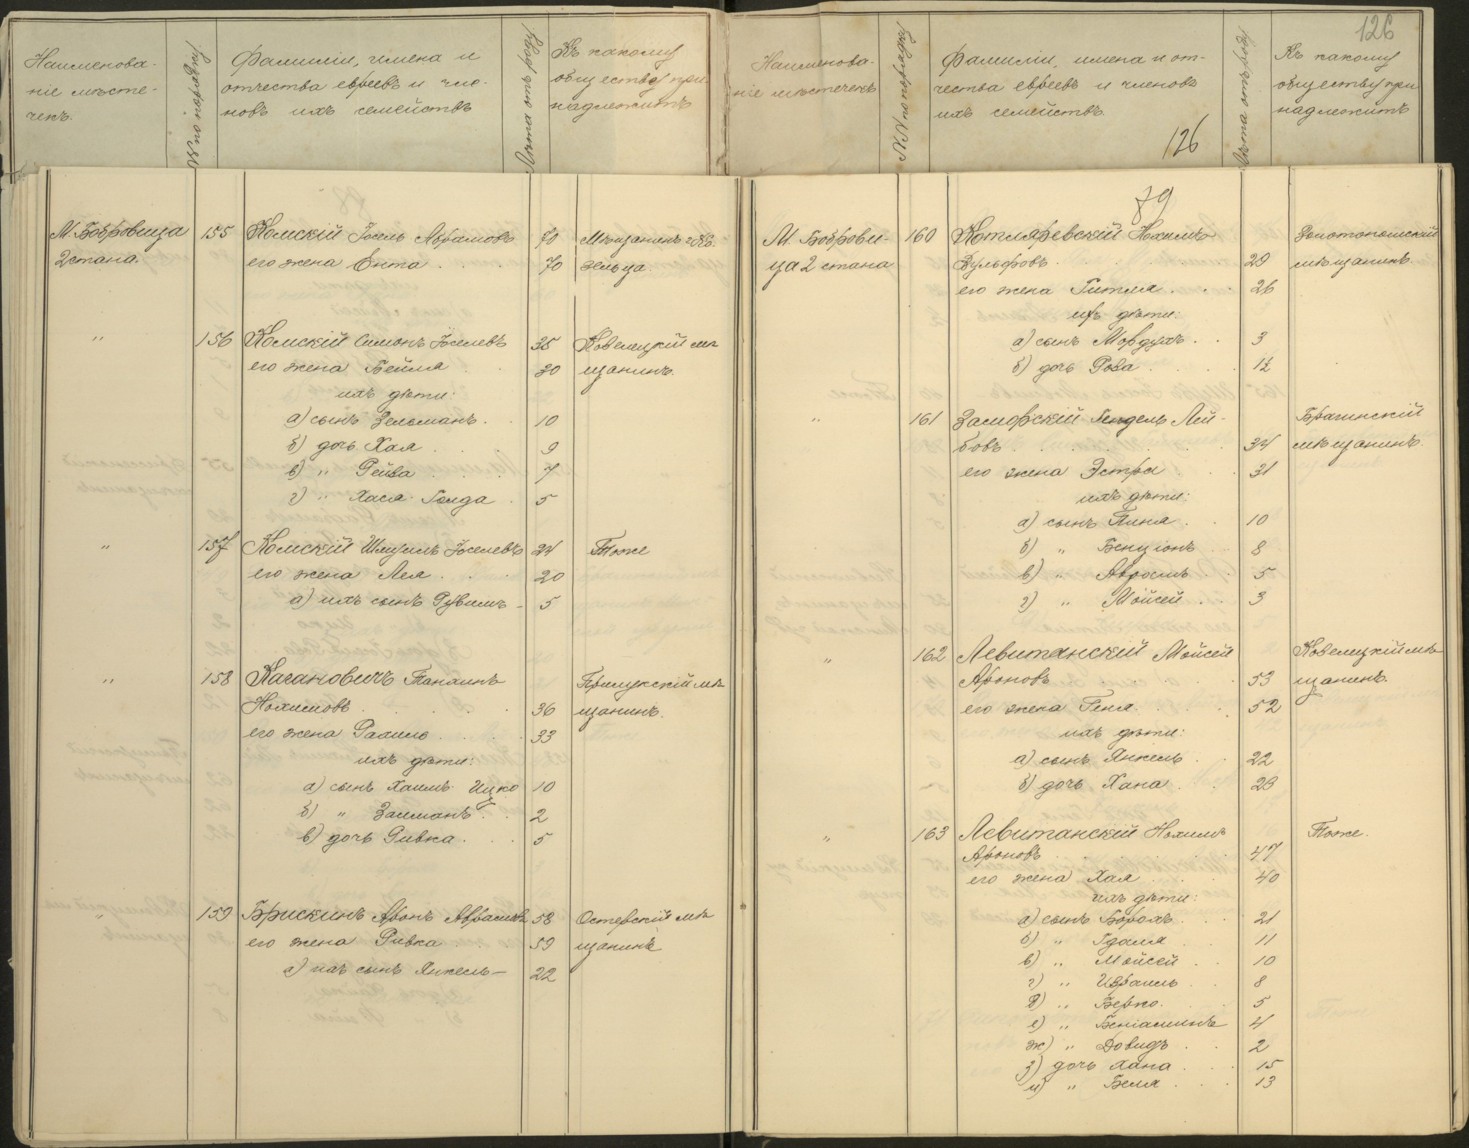 126
Наименова-
ніе мѣсте-
чекъ.
№ по порядку
Фамиліи, имена и
отчества евреевъ и чле-
новъ ихъ семействъ
Лѣта отъ роду
Къ какому
обществу при
надлежитъ
М. Бобровица
2 стана.
155
Комскій Іосель Абрамовъ
70
Мѣщанинъ г. Ко
его жена Ента
70
зельца
"
156
Комскій Симонъ Іоселевъ
35
Ковелецкій мѣ
его жена Бейла
30
щанинъ.
ихъ дѣти:
а) сынъ Зельманъ
10
б) дочь Хая
9
в) " Рейза
7
г) " Хася-Голда
5
"
157
Комскій Шмуилъ Іоселевъ
24
Тоже
его жена Лея
20
а) ихъ сынъ Рувимъ
5
"
158
Кагановичъ Танхинъ
Прилукскій мѣ
Нохимовъ
36
щанинъ.
его жена Рахиль
33
ихъ дѣти:
а) сынъ Хаимъ-Ицко
10
б) " Залманъ
2
в) дочь Ривка
5
"
159
Брискинъ Аронъ Абрамовъ
58
Остерскій мѣ
его жена Ривка
59
щанинъ
а) ихъ сынъ Янкель
22
Наименова-
ніе мѣстечекъ
№№ по порядку
Фамиліи, имена и от-
чества евреевъ и членовъ
ихъ семействъ.
126
Лѣта отъ роду
Къ какому
обществу при
надлежитъ
79
М. Боброви-
ца 2 стана
160
Котляревскій Нохимъ
Золотоношскій
Вульфовъ
29
мѣщанинъ.
его жена Гитля
26
ихъ дѣти:
а) сынъ Мордухъ
3
б) дочь Роза
1½
"
161
Замовскій Гендель Лей-
Брагинскій
бовъ
34
мѣщанинъ.
его жена Эстра
31
ихъ дѣти:
а) сынъ Пиня
10
б) " Бенціонъ
8
в) " Абрамъ
5
г) " Мойсей
3
"
162
Левитанскій Мойсей
Ковелецкій мѣ
Ароновъ
53
щанинъ.
его жена Геня
52
ихъ дѣти:
а) сынъ Янкель
22
б) дочь Хана
23
"
163
Левитанскій Нохимъ
Тоже.
Ароновъ
47
его жена Хая
40
ихъ дѣти:
а) сынъ Борохъ
21
б) " Гдаля
11
в) " Мойсей
10
г) " Израиль
8
д) " Берко
5
е) " Беніаминъ
4
ж) " Довидъ
2
з) дочь Хана
15
и) " Беля
13